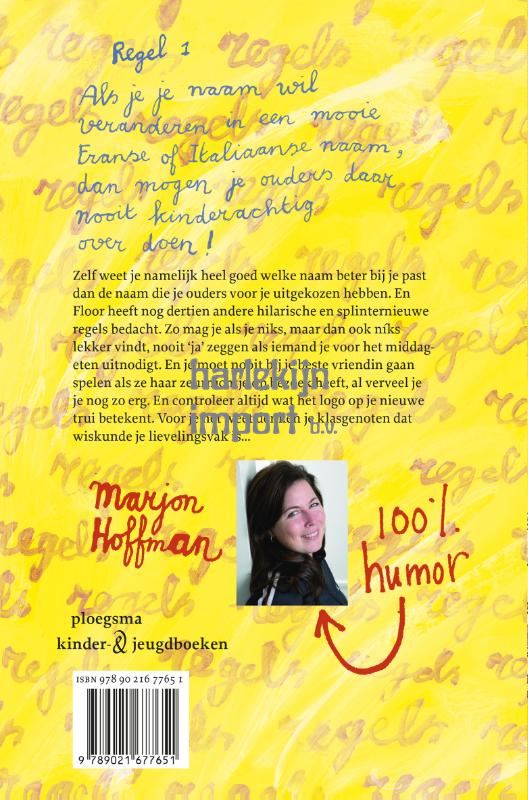 Regel 1
Als je je naam wil
veranderen in een mooie
Franse of Italiaanse naam,
dan mogen je ouders daar
nooit kinderachtig
over doen!
Zelf weet je namelijk heel goed welke naam beter bij je past
dan de naam die je ouders voor je uitgekozen hebben. En
Floor heeft nog dertien andere hilarische en splinternieuwe
regels bedacht. Zo mag je als je niks, maar dan ook níks
lekker vindt, nooit ‘ja’ zeggen als iemand je voor het middag-
eten uitnodigt. En je moet nooit bij je beste vriendin gaan
spelen als ze haar op bezoek heeft, al verveel je
je nog zo erg. En controleer altijd wat het logo op je nieuwe
trui betekent. Voor je het weet denken je klasgenoten dat
wiskunde je lievelingsvak is...
harlekijn
import b.v.
Marjon
Hoffman
100%
humor
ploegsma
kinder- & jeugdboeken
ISBN 978 90 216 7765 1
9 789021 677651